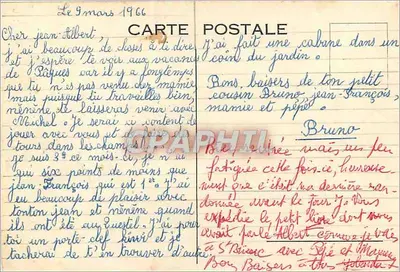 Le 9 mars 1966
CARTE POSTALE
Cher jean-Albert,
j'ai beaucoup de choses à te dire
et j'espère te voir aux vacances
de Pâques car il y a longtemps
que tu n'es pas venu chez mamie
mais puisque tu travailles bien,
nénène, te laisseras venir avec
Michel. Je serai si content de
jouer avec vous et
tours dans les champs
je suis 3e ce mois-ci, je n'ai
que six points de moins que
jean François qui est 1er. J'ai
eu beaucoup de plaisir avec
tonton jean et nénène quand
ils ont été au Questel. J'ai pas
toi un porte-clef et je
tacherai de t'en trouver d'autres
j'ai fait une cabane dans un
coin du jardin.
Bons baisers de ton petit
cousin Bruno, jean-François,
mamie et pépé.
Bruno
CPARAMA
mais un peu
fatiguée cette fois-ci, heureuse
que c'était ma dernière ran-
donnée avant le four. Je vous
expédie le petit dont vous
avait parlé Albert comme je vais
à St Brieuc avec Pépé et
Bons Baisers à tous